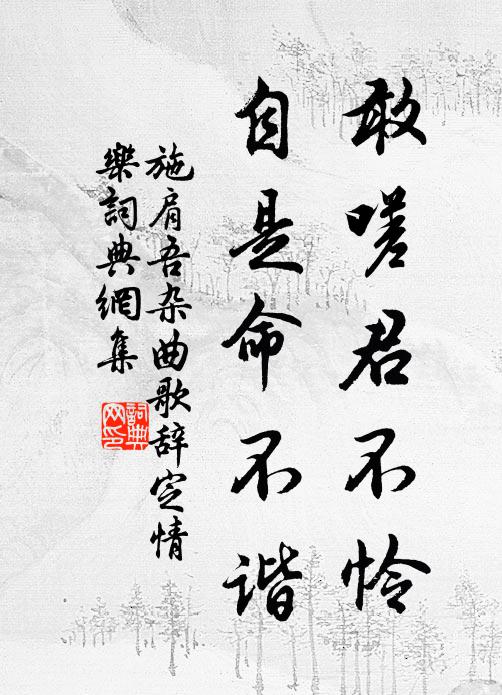 敢嗟君不怜
自是命不谐
施肩吾杂曲歌辞定情
樂詞典網集
詞典网印